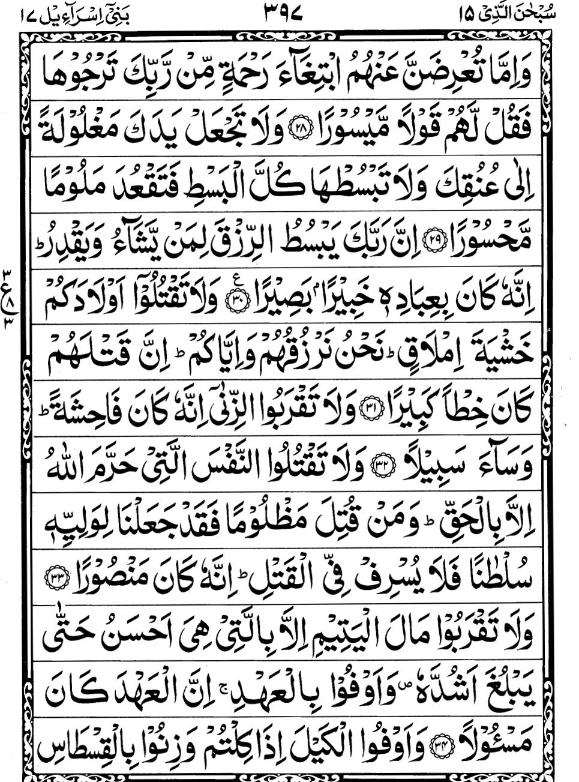 سُبْحٰنَ الَّذِیْۤ ۱۵
۳۹۷
بَنِیْۤ اِسْرَآءِیْل ۱۷
وَاِمَّا تُعْرِضَنَّ عَنْهُمُ ابْتِغَآءَ رَحْمَةٍ مِّنْ رَّبِّكَ تَرْجُوْهَا
فَقُلْ لَّهُمْ قَوْلًا مَّیْسُوْرًا ۝۲۸ وَلَا تَجْعَلْ یَدَكَ مَغْلُوْلَةً
اِلٰی عُنُقِكَ وَلَا تَبْسُطْهَا كُلَّ الْبَسْطِ فَتَقْعُدَ مَلُوْمًا
مَّحْسُوْرًا ۝۲۹ اِنَّ رَبَّكَ یَبْسُطُ الرِّزْقَ لِمَنْ یَّشَآءُ وَیَقْدِرُ ؕ
اِنَّهٗ كَانَ بِعِبَادِهٖ خَبِیْرًۢا بَصِیْرًا ۝۳۰ ع وَلَا تَقْتُلُوْۤا اَوْلَادَكُمْ
۳ ع ۸ ۳
خَشْیَةَ اِمْلَاقٍ ؕ نَحْنُ نَرْزُقُهُمْ وَاِیَّاكُمْ ؕ اِنَّ قَتْلَهُمْ
كَانَ خِطْاً كَبِیْرًا ۝۳۱ وَلَا تَقْرَبُوا الزِّنٰۤی اِنَّهٗ كَانَ فَاحِشَةً ؕ
وَسَآءَ سَبِیْلًا ۝۳۲ وَلَا تَقْتُلُوا النَّفْسَ الَّتِیْ حَرَّمَ اللّٰهُ
اِلَّا بِالْحَقِّ ؕ وَمَنْ قُتِلَ مَظْلُوْمًا فَقَدْ جَعَلْنَا لِوَلِیِّهٖ
سُلْطٰنًا فَلَا یُسْرِفْ فِّی الْقَتْلِ ؕ اِنَّهٗ كَانَ مَنْصُوْرًا ۝۳۳
وَلَا تَقْرَبُوْا مَالَ الْیَتِیْمِ اِلَّا بِالَّتِیْ هِیَ اَحْسَنُ حَتّٰی
یَبْلُغَ اَشُدَّهٗ ۪ وَاَوْفُوْا بِالْعَهْدِ ۚ اِنَّ الْعَهْدَ كَانَ
مَسْـُٔوْلًا ۝۳۴ وَاَوْفُوا الْكَیْلَ اِذَا كِلْتُمْ وَزِنُوْا بِالْقِسْطَاسِ